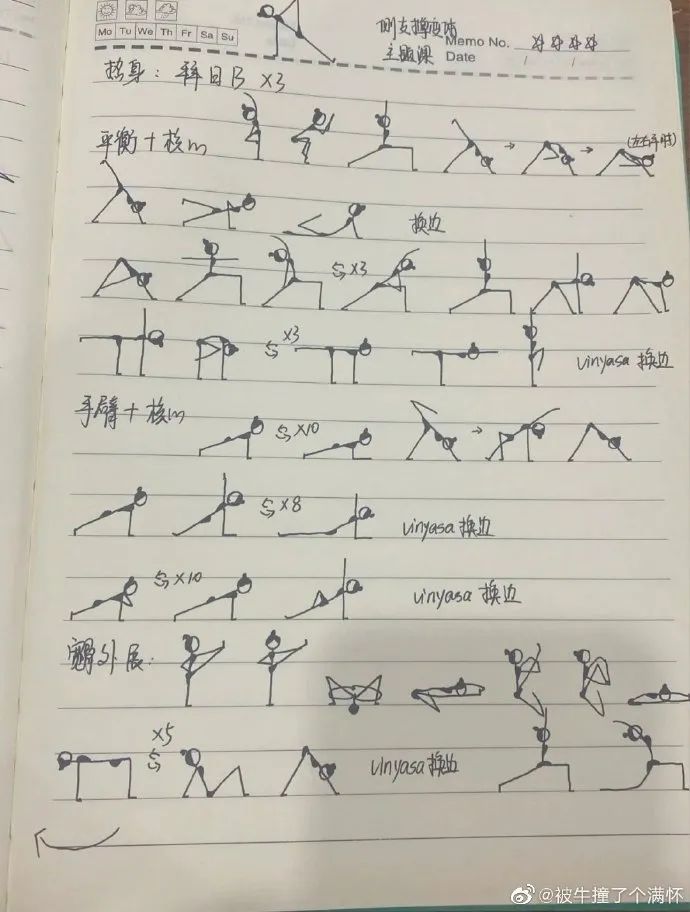 侧支撑变体
主题课
Memo No.
Mo Tu We Th Fr Sa Su
Date / /
热身：拜日B ×3
平衡+核心
(左右手肘)
换边
×3
×3
vinyasa 换边
手臂+核心
×10
×8
vinyasa 换边
×10
vinyasa 换边
髋外展：
×5
vinyasa 换边
@被牛撞了个满怀